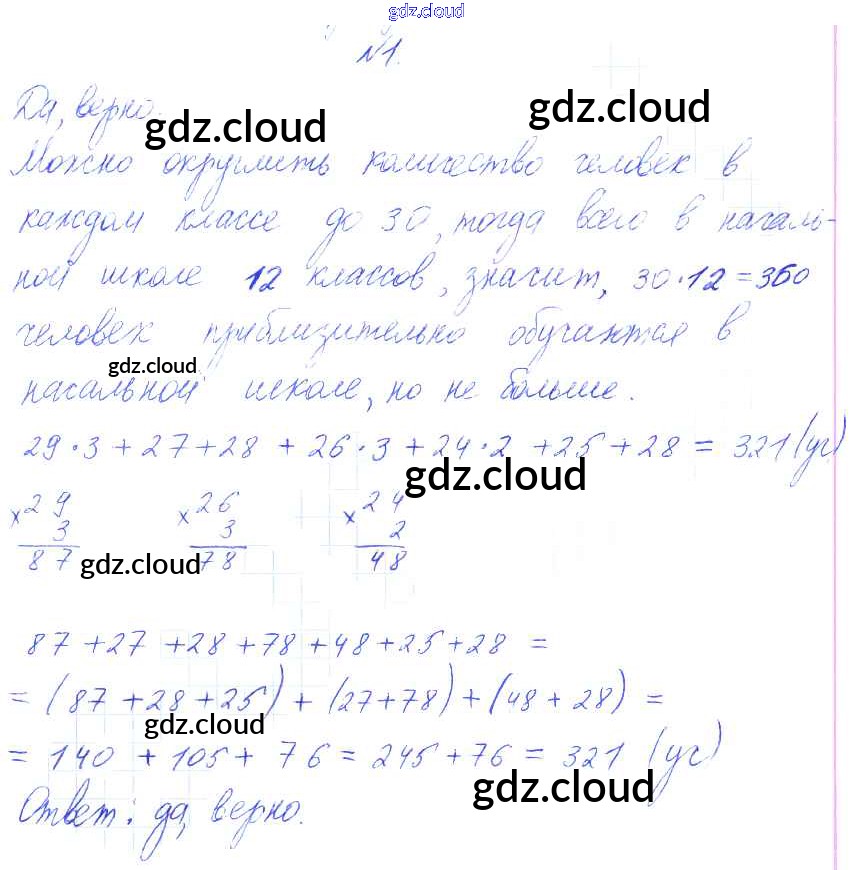 gdz.cloud
№1.
Да, верно.
gdz.cloud
gdz.cloud
Можно округлить количество человек в
каждом классе до 30, тогда всего в началь-
ной школе 12 классов, значит, 30·12=360
человек приблизительно обучаются в
gdz.cloud
начальной школе, но не больше.
29·3+27+28+26·3+24·2+25+28=321(уч)
gdz.cloud
×29 ×26 ×24
3 3 2
87 78 48
gdz.cloud gdz.cloud
87+27+28+78+48+25+28=
=(87+28+25)+(27+78)+(48+28)=
gdz.cloud
=140+105+76=245+76=321(уч)
gdz.cloud
Ответ: да, верно.